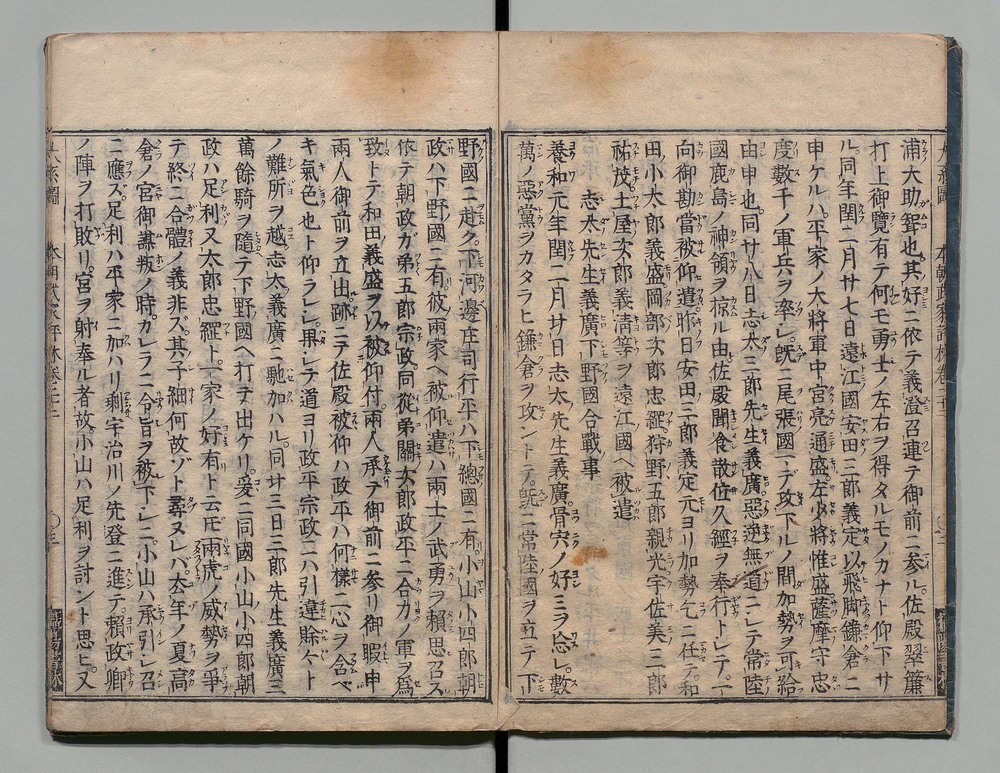 浦大助聟也其好ニ依テ義澄召連テ御前ニ参ル佐殿翠簾
打上御覽有テ何モ勇士ノ左右ヲ得タルモノカナト仰下サ
ル同年閏二月廿七日遠江國安田三郎義定以飛脚鎌倉ニ
申ケルハ平家ノ大將軍中宮亮通盛左少將惟盛薩摩守忠
度數千ノ軍兵ヲ率シ既ニ尾張國マデ攻下ルノ間加勢ヲ可給
由申也同廿八日志太三郎先生義廣惡逆無道ニシテ常陸
國鹿島ノ神領ヲ掠ル由佐殿聞食散位久經ヲ奉行トシテ一
向御勘當被仰遣昨日安田三郎義定元ヨリ加勢乞ニ任テ和
田小太郎義盛岡部次郎忠綱狩野五郎親光宇佐美三郎
祐茂土屋次郎義清等ヲ遠江國ヘ被遣
志太先生義廣下野國合戰事
養和元年閏二月廿日志太先生義廣骨穴ノ好ミヲ忘レ數
萬ノ惡黨ヲカタラヒ鎌倉ヲ攻ントテ既ニ常陸國ヲ立テ下
野國ニ赴ク下河邊庄司行平ハ下總國ニ有小山小四郎朝
政ハ下野國ニ有彼兩家ヘ被仰遣ハ兩士ノ武勇ヲ賴思召ス
依テ朝政ガ弟五郎宗政同從弟關次郎政平ニ合力ノ軍ヲ爲
致トテ和田義盛ヲ以被仰付兩人承テ御前ニ参リ御暇申
兩人御前ヲ立出跡ニテ佐殿被仰ハ政平ハ何樣二心ヲ含ベ
キ氣色也ト仰ラレシ果シテ道ヨリ政平宗政ニハ引違賒々ト
ノ難所ヲ越志太義廣ニ馳加ハル同廿三日三郎先生義廣三
萬餘騎ヲ隨テ下野國ヘ打テ出ケリ爰ニ同國小山小四郎朝
政ハ足利又太郎忠綱ト一家ノ好有ト云𪜈兩虎ノ威勢ヲ爭
テ終ニ合體ノ義非ズ其子細何故ゾト尋ヌレバ去年ノ夏高
倉ノ宮御謀叛ノ時カレラニ令旨ヲ被下シニ小山ハ承引シ召
ニ應ズ足利ハ平家ニ加ハリ剩宇治川ノ先登ニ進テ賴政卿
ノ陣ヲ打敗リ宮ヲ射奉ル者故小山ハ足利ヲ討ント思ヒ又